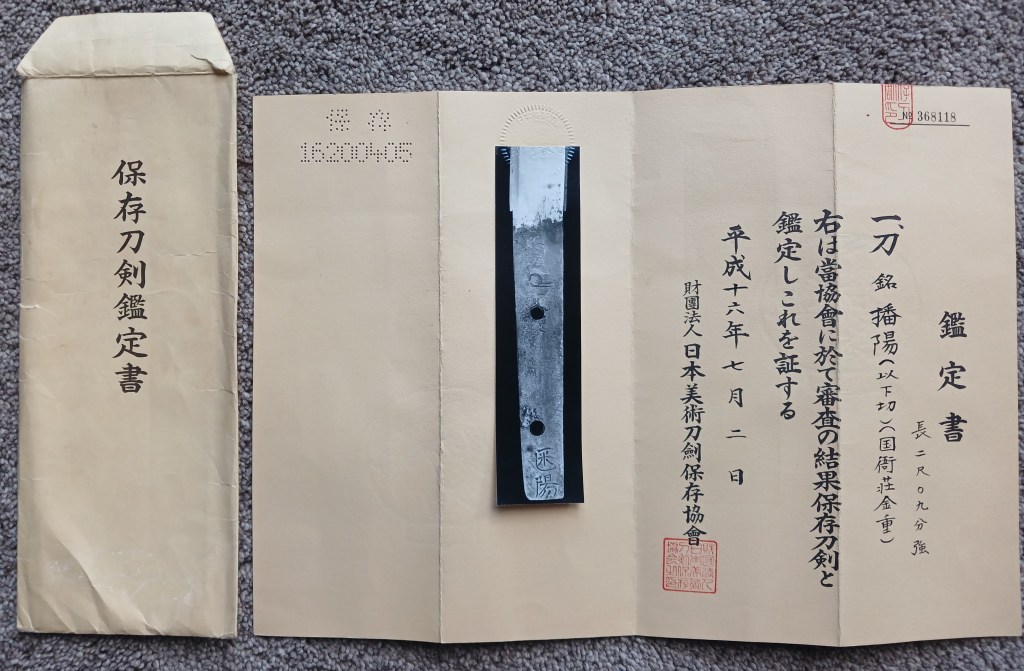 保存刀剣鑑定書
№ 368118
鑑定書
長 二尺〇九分強
一、刀 銘 播陽(以下切)(国衙荘金重)
右は當協會に於て審査の結果保存刀剣と
鑑定しこれを証する
平成十六年七月二日
財團法人 日本美術刀劍保存協會
保存
16200405
陽